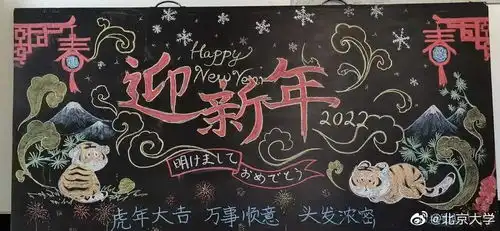 Happy
New Year
春
春
迎新年
2022
明けまして
おめでとう
虎年大吉 万事顺意 头发浓密
@北京大学